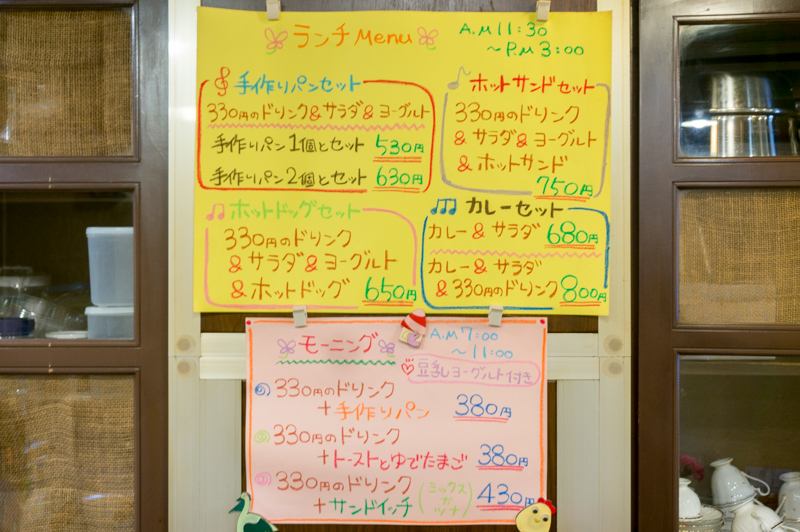 ランチMenu
A.M 11:30
～P.M 3:00
手作りパンセット
330円のドリンク&サラダ&ヨーグルト
手作りパン1個とセット 530円
手作りパン2個とセット 630円
ホットサンドセット
330円のドリンク
&サラダ&ヨーグルト
&ホットサンド
750円
ホットドッグセット
330円のドリンク
&サラダ&ヨーグルト
&ホットドッグ 650円
カレーセット
カレー&サラダ 680円
カレー&サラダ
&330円のドリンク 800円
モーニング
A.M 7:00
～11:00
豆乳ヨーグルト付き
330円のドリンク
+手作りパン 380円
330円のドリンク
+トーストとゆでたまご 380円
330円のドリンク
+サンドイッチ(ミックスかツナ) 430円